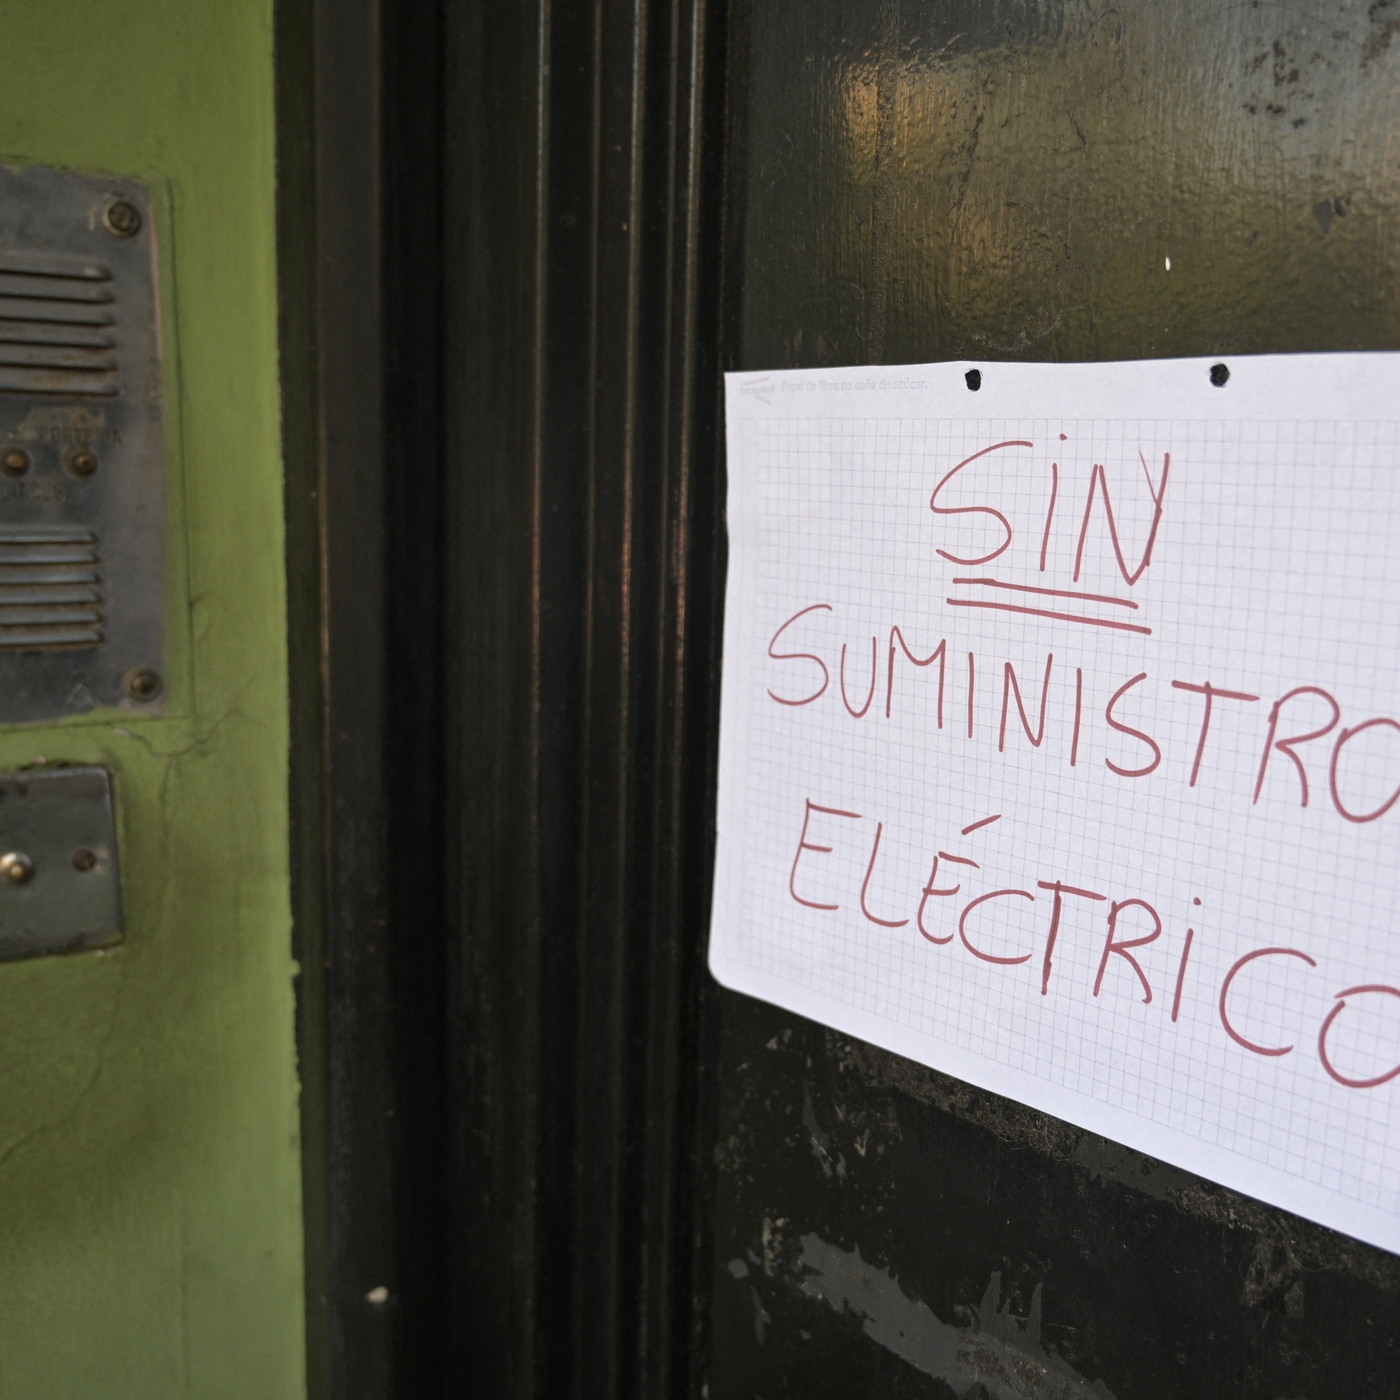 Papel de fibra de caña de azúcar.
SIN
SUMINISTRO
ELÉCTRICO